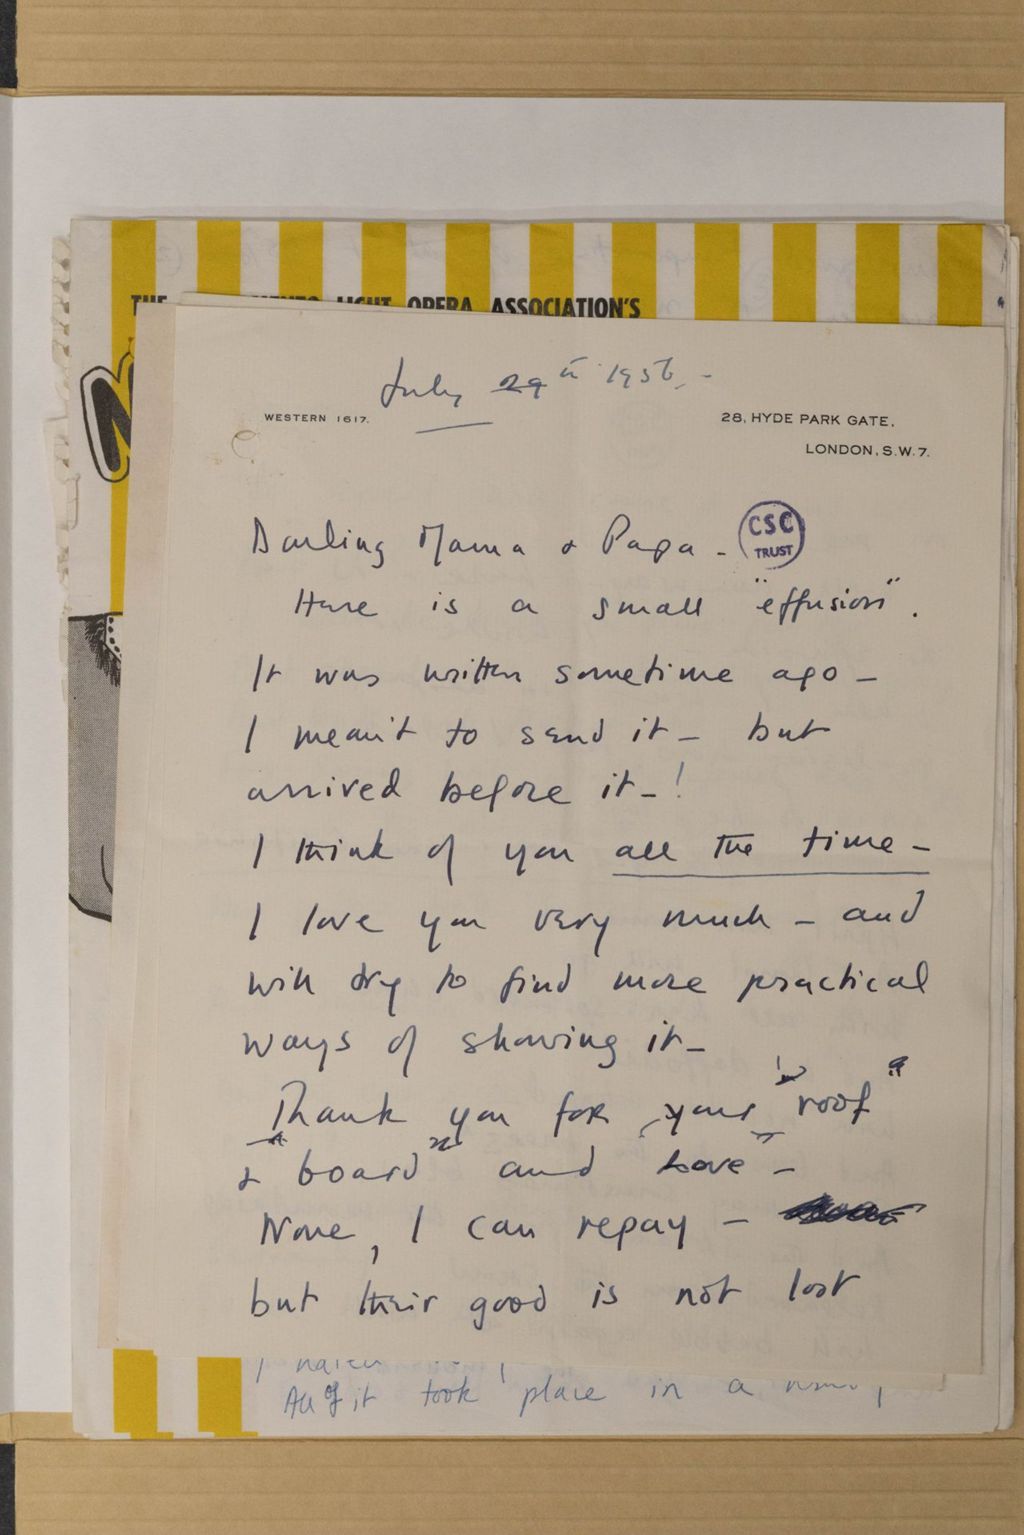 LIGHT OPERA ASSOCIATION'S
July 29th 1956.-
WESTERN 1617.
28, HYDE PARK GATE,
LONDON, S.W.7.
Darling Mama & Papa -
CSC
TRUST
Here is a small "effusion".
It was written sometime ago -
I meant to send it - but
arrived before it - !
I think of you all the time -
I love you very much - and
will try to find more practical
ways of showing it -
Thank you for your "roof"
& "board" and "Love" -
None, I can repay -
but their good is not lost
All of it took place in a